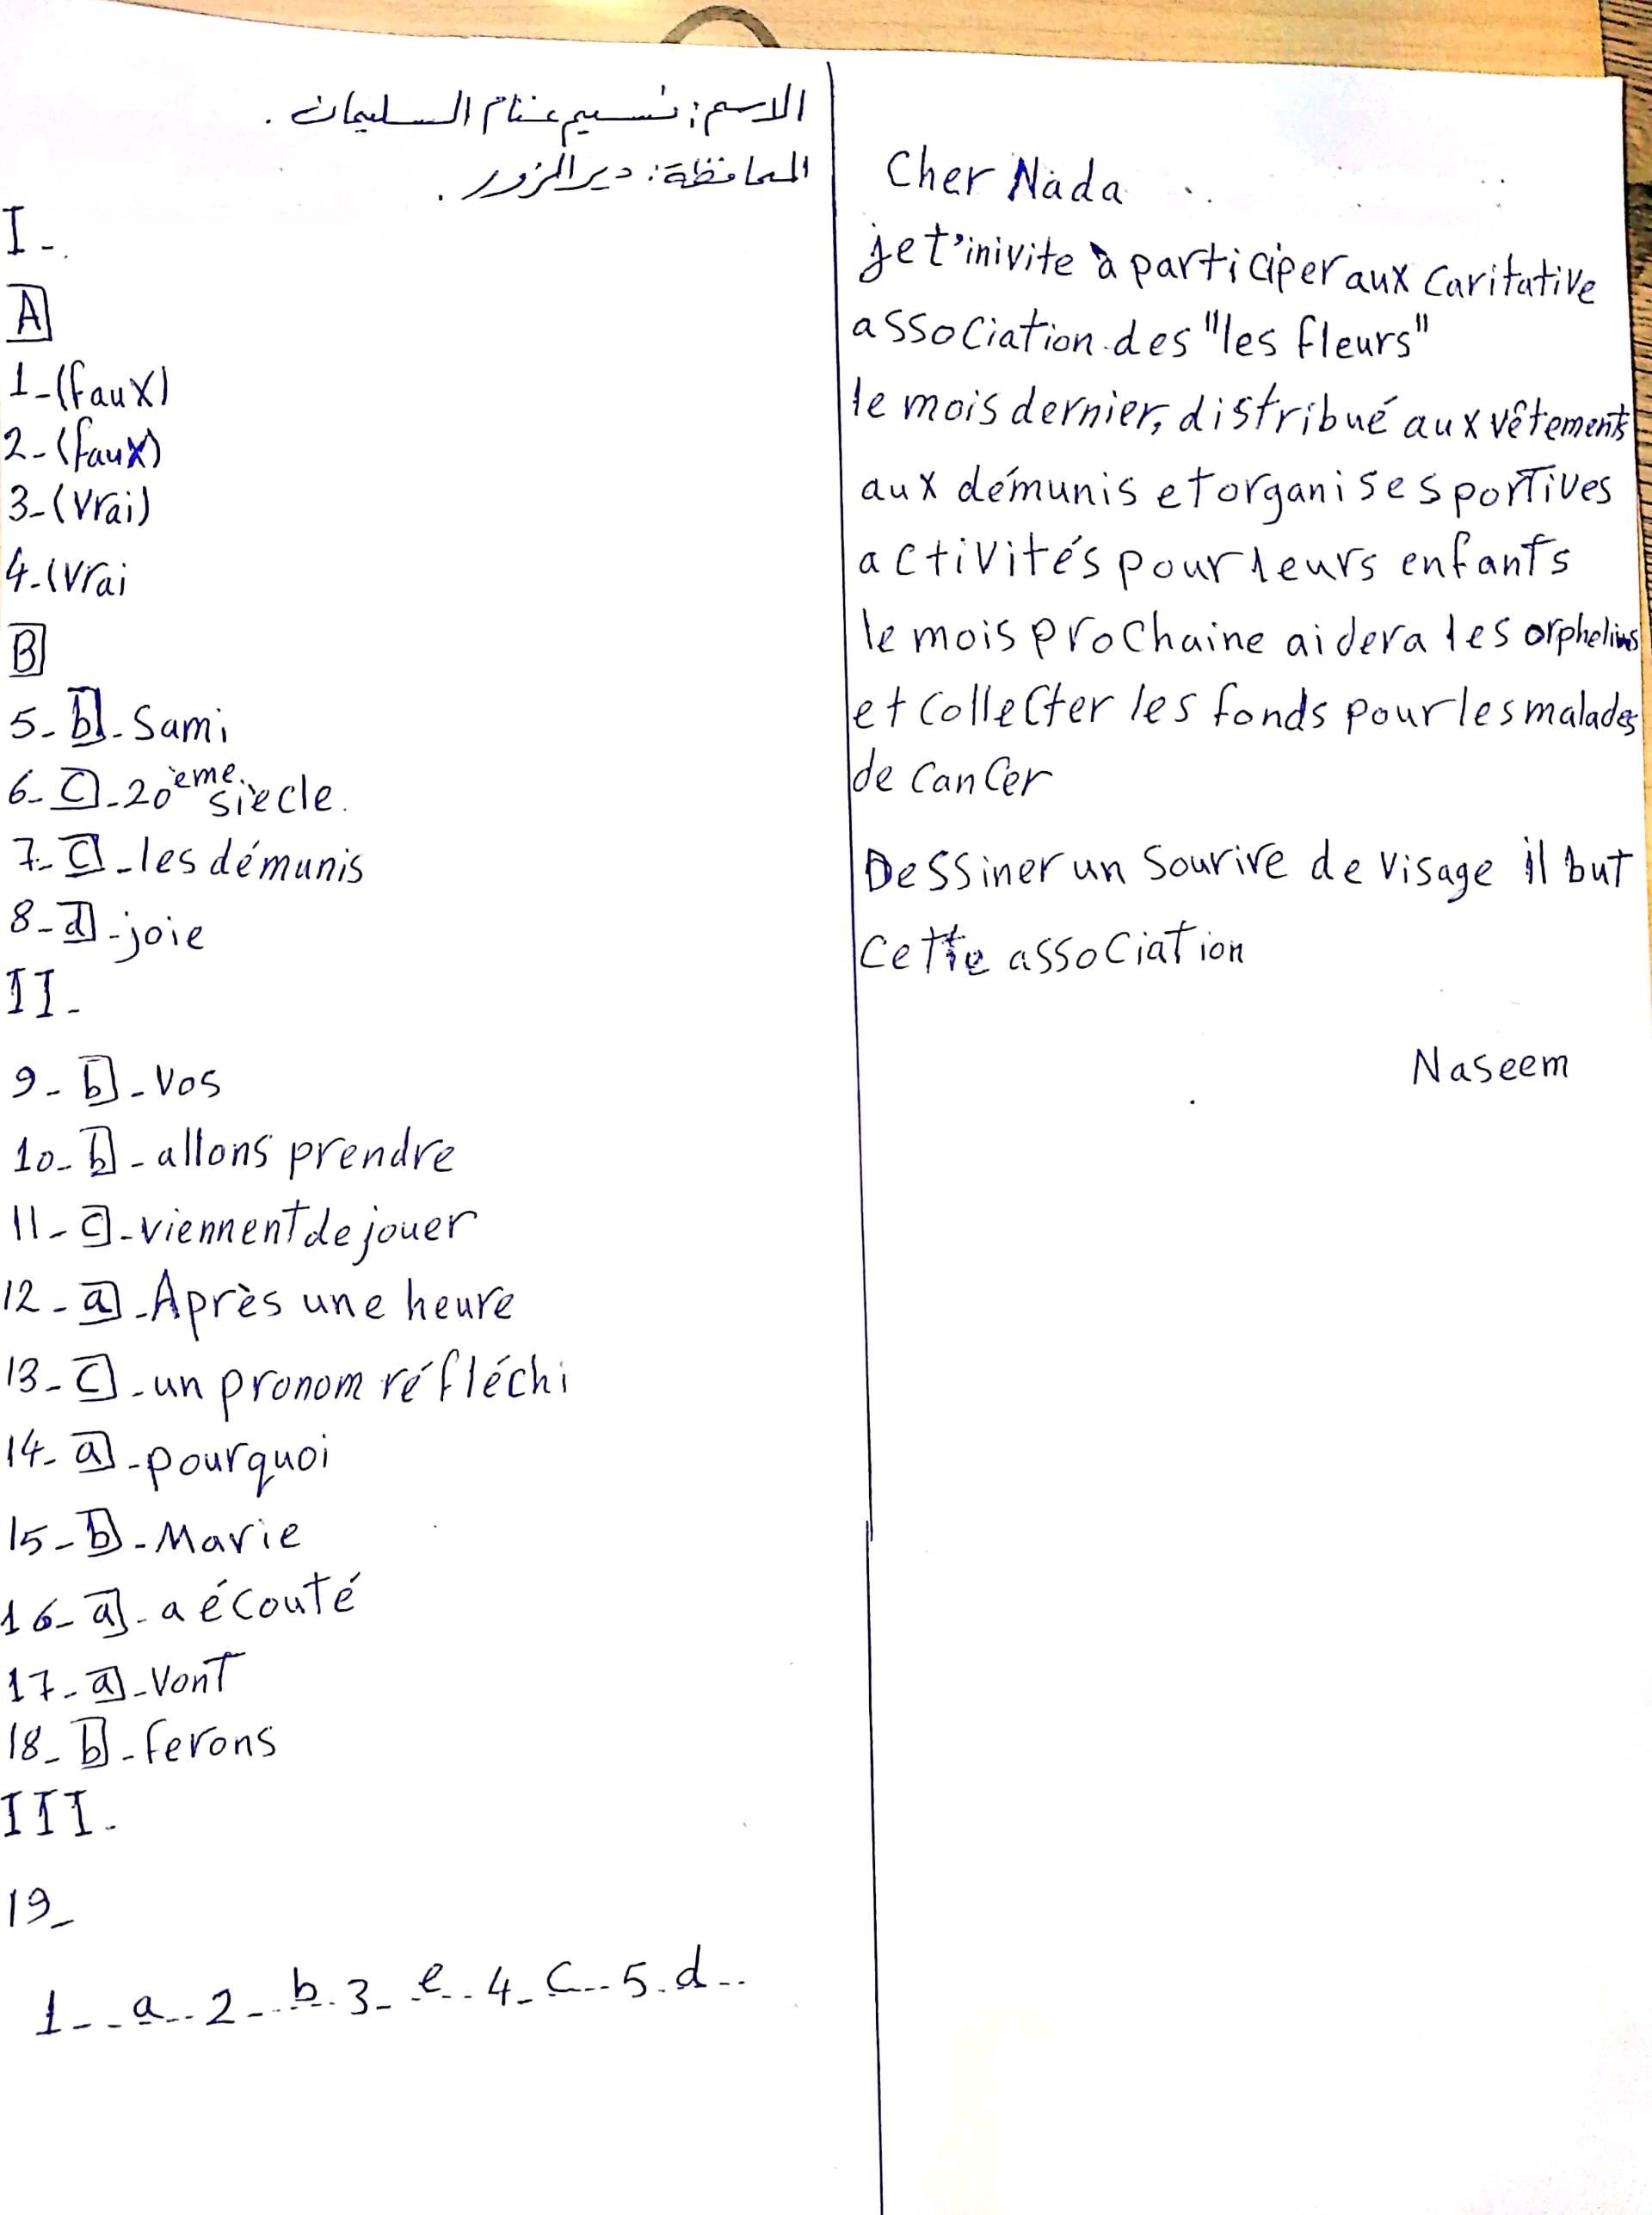 الاسم: نسيم غنام السليمان .
المحافظة: ديرالزور .
I-.
A
1-(faux)
2-(faux)
3-(vrai)
4-(vrai
B
5-b-Sami
6-C-20ème siècle.
7-C-les démunis
8-d-joie
II-
9-b-Vos
10-b-allons prendre
11-C-viennent de jouer
12-a-Après une heure
13-C-un pronom réfléchi
14-a-pourquoi
15-b-Marie
16-a-a écouté
17-a-Vont
18-b-ferons
III-
19-
1--a--2--b-3--e--4-C--5-d--
Cher Nada
je t'inivite à participer aux Caritative
association des "les fleurs"
le mois dernier, distribué aux vêtements
aux démunis et organise sportives
activités pour leurs enfants
le mois prochaine aidera les orphelins
et Collecter les fonds pour les malades
de Cancer
Dessiner un Sourire de visage il but
Cette association
Naseem